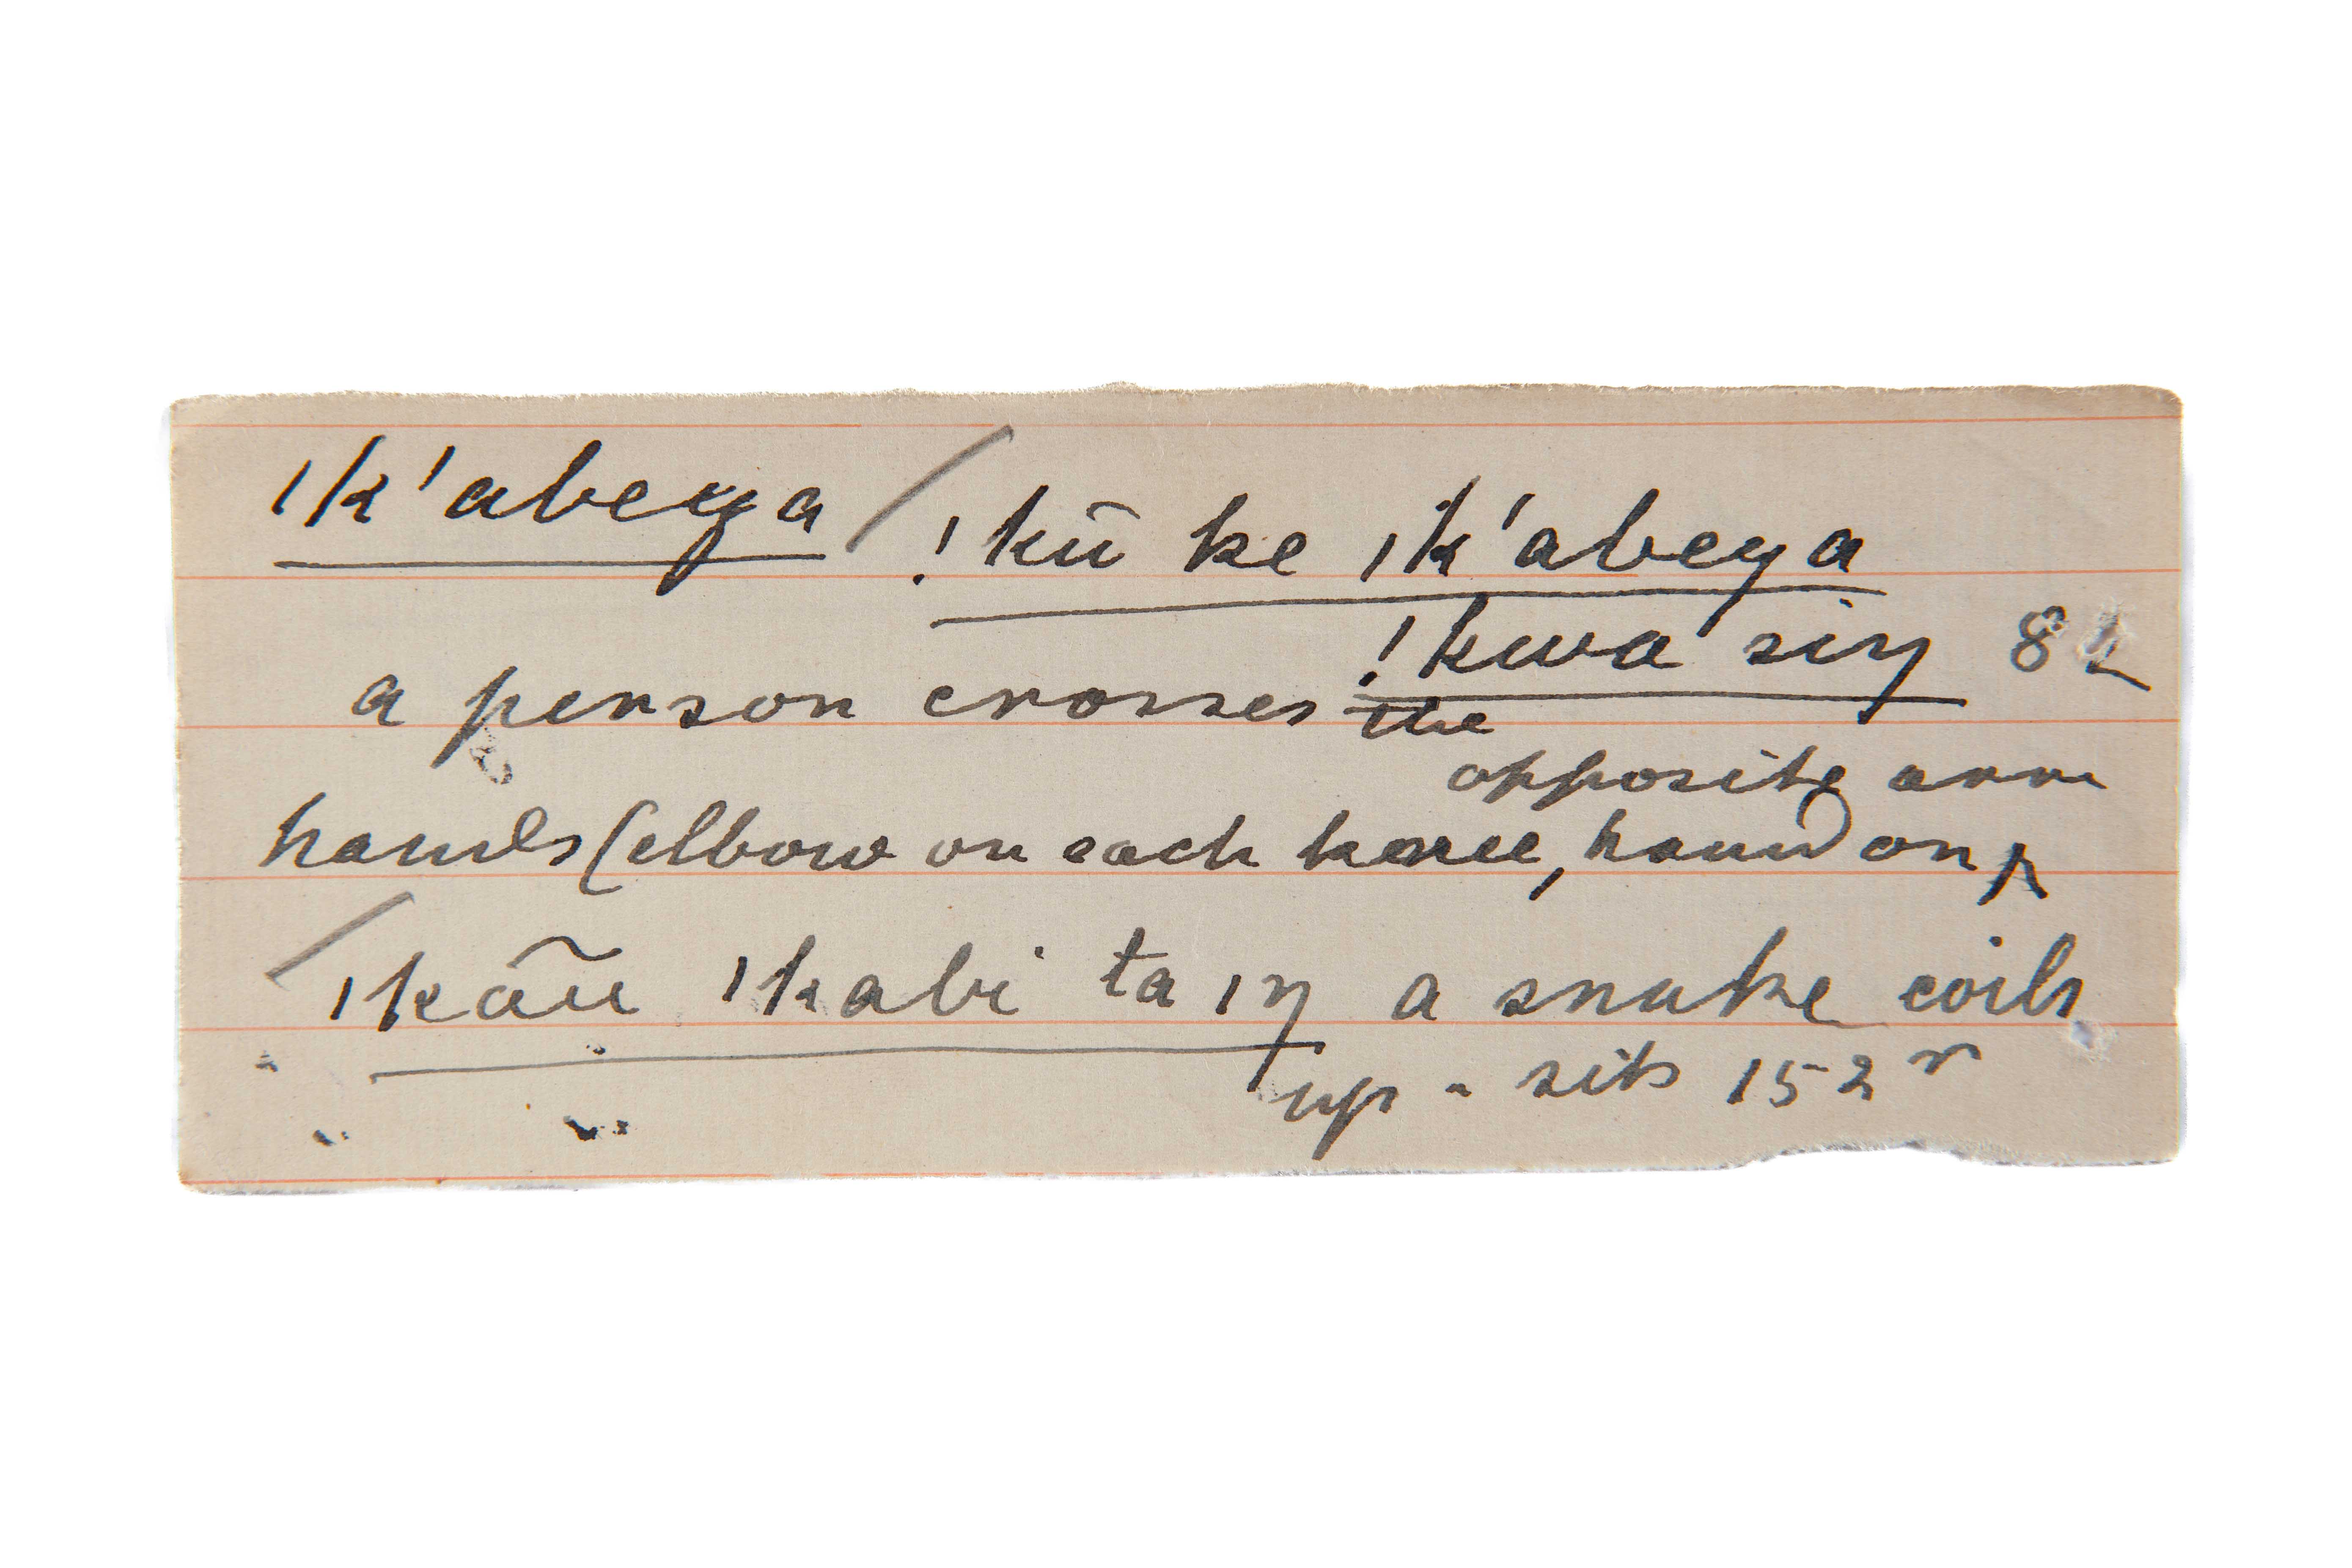 ǀk'abeya / !kū ke ǀk'abeya
!kwa siŋ 8
a person crosses the
opposite arm
hands (elbow on each knee, hand on ⁁
/ ǀkãũ ǀkabi ta ıŋ a snake coils
up - sits 152 r